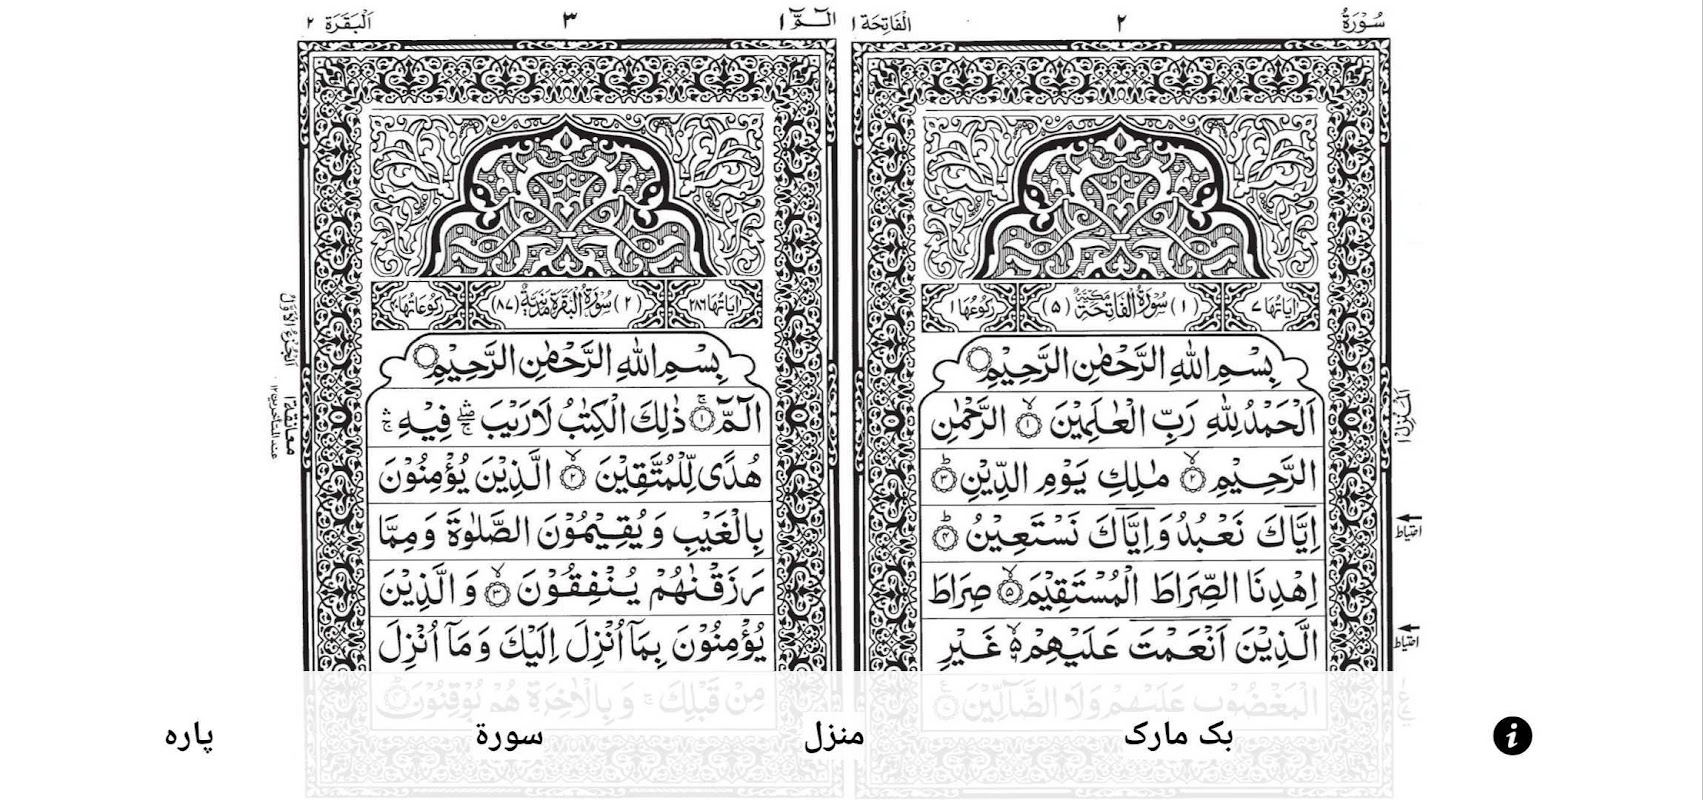 سُوْرَةُ ٢ اَلْفَاتِحَة ١
اٰيَاتُهَا ٧ (١) سُوْرَةُ الْفَاتِحَةِ مَكِّيَّةٌ (٥) رُكُوْعُهَا ١
بِسْمِ اللهِ الرَّحْمٰنِ الرَّحِيْمِ
اَلْحَمْدُ لِلّٰهِ رَبِّ الْعٰلَمِيْنَ ۙ﴿١﴾ الرَّحْمٰنِ
الرَّحِيْمِ ۙ﴿٢﴾ مٰلِكِ يَوْمِ الدِّيْنِ ؕ﴿٣﴾
اِيَّاكَ نَعْبُدُ وَاِيَّاكَ نَسْتَعِيْنُ ؕ﴿٤﴾
اِهْدِنَا الصِّرَاطَ الْمُسْتَقِيْمَ ۙ﴿٥﴾ صِرَاطَ
الَّذِيْنَ اَنْعَمْتَ عَلَيْهِمْ ۙ۬ غَيْرِ
الْمَغْضُوْبِ عَلَيْهِمْ وَلَا الضَّآلِّيْنَ
اَلْمَنْزِل ١
احتیاط
احتیاط
الٓمّٓ ١ ٣ اَلْبَقَرَة ٢
اٰيَاتُهَا ٢٨٦ (٢) سُوْرَةُ الْبَقَرَةِ مَدَنِيَّةٌ (٨٧) رُكُوْعَاتُهَا ٤٠
بِسْمِ اللهِ الرَّحْمٰنِ الرَّحِيْمِ
الٓمّٓ ۚ﴿١﴾ ذٰلِكَ الْكِتٰبُ لَا رَيْبَ ۛۖۚ فِيْهِ ۛۚ
هُدًى لِّلْمُتَّقِيْنَ ۙ﴿٢﴾ الَّذِيْنَ يُؤْمِنُوْنَ
بِالْغَيْبِ وَيُقِيْمُوْنَ الصَّلٰوةَ وَمِمَّا
رَزَقْنٰهُمْ يُنْفِقُوْنَ ۙ﴿٣﴾ وَالَّذِيْنَ
يُؤْمِنُوْنَ بِمَاۤ اُنْزِلَ اِلَيْكَ وَمَاۤ اُنْزِلَ
مِنْ قَبْلِكَ ۚ وَبِالْاٰخِرَةِ هُمْ يُوْقِنُوْنَ
اَلْجُزْءُ الْاَوَّلُ
معانقة ١
عند المتاخرين ١٢
بک مارک
منزل
سورة
پارہ
i